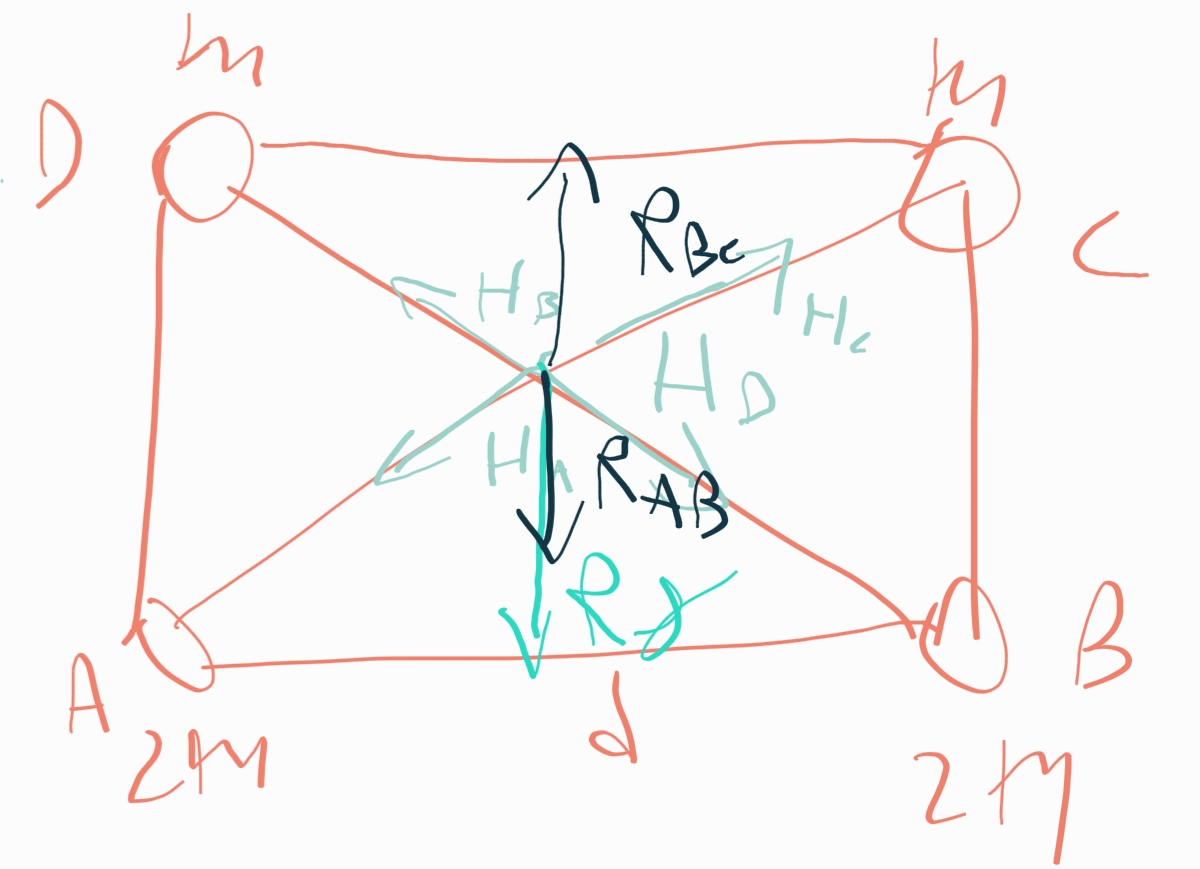 m m
D C
R_BC
H_B H_C
H_D
H_A R_AB
R_y
A B
2m d 2m